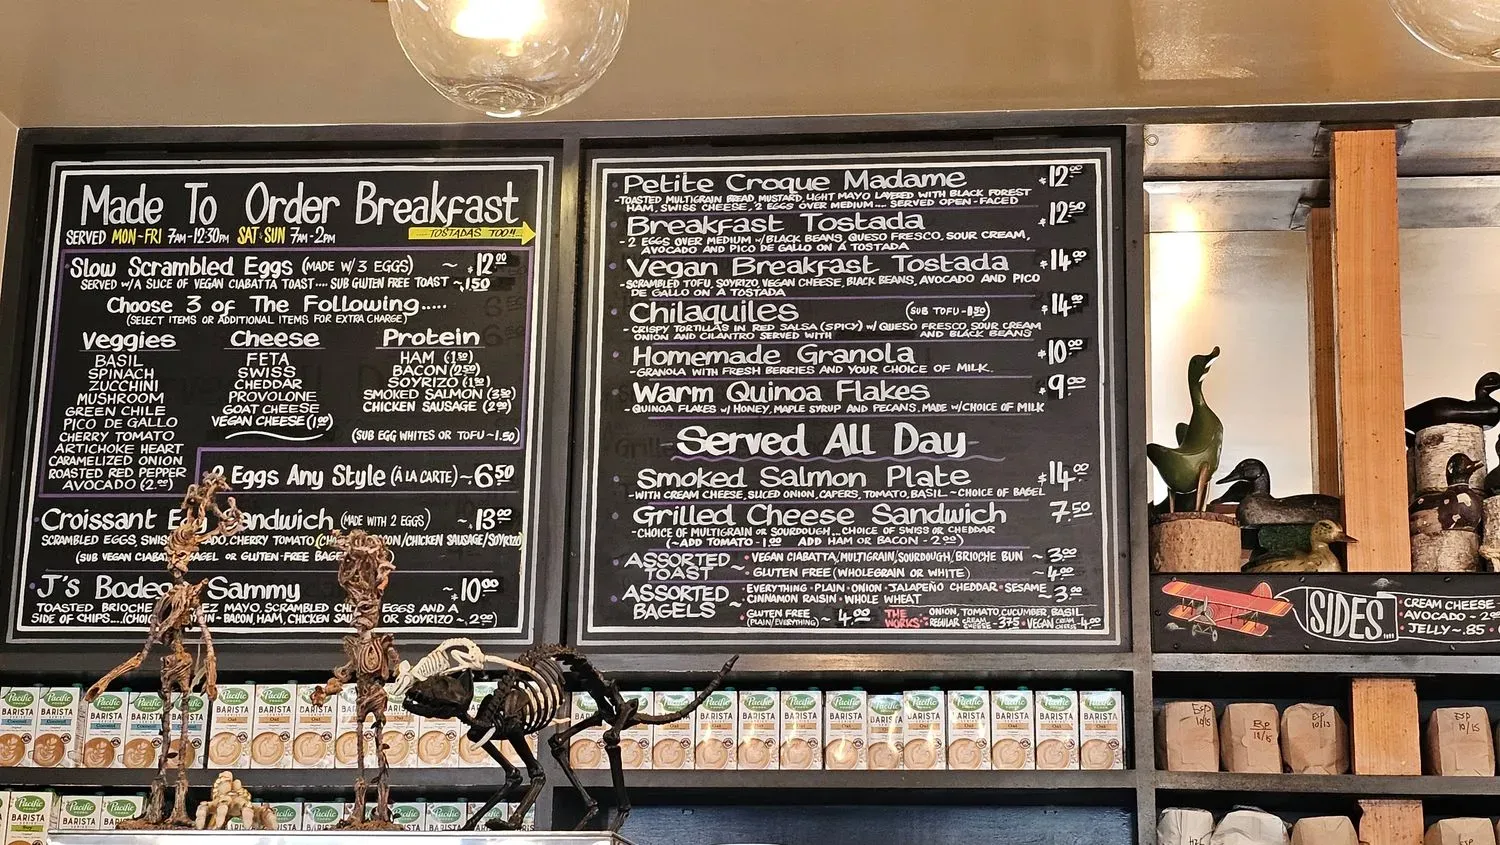 Made To Order Breakfast
SERVED MON-FRI 7AM-12:30PM SAT & SUN 7AM-2PM
TOSTADAS TOO!!
Slow Scrambled Eggs (MADE W/ 3 EGGS) ~ $12.00
SERVED W/A SLICE OF VEGAN CIABATTA TOAST.... SUB GLUTEN FREE TOAST ~1.50
Choose 3 of The Following.....
(SELECT ITEMS OR ADDITIONAL ITEMS FOR EXTRA CHARGE)
Veggies
BASIL
SPINACH
ZUCCHINI
MUSHROOM
GREEN CHILE
PICO DE GALLO
CHERRY TOMATO
ARTICHOKE HEART
CARAMELIZED ONION
ROASTED RED PEPPER
AVOCADO (2.00)
Cheese
FETA
SWISS
CHEDDAR
PROVOLONE
GOAT CHEESE
VEGAN CHEESE (1.00)
Protein
HAM (1.50)
BACON (2.50)
SOYRIZO (1.50)
SMOKED SALMON (3.50)
CHICKEN SAUSAGE (2.00)
(SUB EGG WHITES OR TOFU ~1.50)
2 Eggs Any Style (À LA CARTE) ~ 6.50
Croissant Egg Sandwich (MADE WITH 2 EGGS) ~ $13.00
SCRAMBLED EGGS, SWISS, CHERRY TOMATO BACON/CHICKEN SAUSAGE/SOYRIZO
(SUB VEGAN CIABATTA BAGEL OR GLUTEN-FREE BAGEL
J's Bodega Sammy ~ $10.00
TOASTED BRIOCHE MAYO, SCRAMBLED EGGS AND A
SIDE OF CHIPS.... - BACON, HAM, CHICKEN OR SOYRIZO ~ 2.00)
Petite Croque Madame $12.00
-TOASTED MULTIGRAIN BREAD, MUSTARD, LIGHT MAYO LAYERED WITH BLACK FOREST
HAM, SWISS CHEESE, 2 EGGS OVER MEDIUM.... SERVED OPEN-FACED
Breakfast Tostada $12.50
- 2 EGGS OVER MEDIUM W/BLACK BEANS, QUESO FRESCO, SOUR CREAM,
AVOCADO AND PICO DE GALLO ON A TOSTADA
Vegan Breakfast Tostada $14.00
-SCRAMBLED TOFU, SOYRIZO, VEGAN CHEESE, BLACK BEANS, AVOCADO AND PICO
DE GALLO ON A TOSTADA
Chilaquiles (SUB TOFU-1.50) $14.00
- CRISPY TORTILLAS IN RED SALSA (SPICY) W/ QUESO FRESCO, SOUR CREAM
ONION AND CILANTRO SERVED WITH AND BLACK BEANS
Homemade Granola $10.00
-GRANOLA WITH FRESH BERRIES AND YOUR CHOICE OF MILK.
Warm Quinoa Flakes $9.00
- QUINOA FLAKES W/ HONEY, MAPLE SYRUP AND PECANS, MADE W/CHOICE OF MILK
Served All Day
Smoked Salmon Plate $14.00
-WITH CREAM CHEESE, SLICED ONION, CAPERS, TOMATO, BASIL ~ CHOICE OF BAGEL
Grilled Cheese Sandwich 7.50
-CHOICE OF MULTIGRAIN OR SOURDOUGH... CHOICE OF SWISS OR CHEDDAR
(~ADD TOMATO-1.00 ADD HAM OR BACON-2.00)
ASSORTED TOAST ~
• VEGAN CIABATTA/MULTIGRAIN/SOURDOUGH/BRIOCHE BUN ~ 3.00
• GLUTEN FREE (WHOLEGRAIN OR WHITE) ~ 4.00
ASSORTED BAGELS ~
• EVERYTHING • PLAIN • ONION • JALAPEÑO CHEDDAR • SESAME
• CINNAMON RAISIN • WHOLE WHEAT 3.00
• GLUTEN FREE (PLAIN/EVERYTHING) ~ 4.00
THE WORKS: ONION, TOMATO, CUCUMBER, BASIL
• REGULAR CREAM CHEESE - 3.75 • VEGAN CREAM CHEESE - 4.00
SIDES....
• CREAM CHEESE
• AVOCADO ~ 2.00
• JELLY ~ .85
Pacific
BARISTA
Oat
ESP 10/15
ESP 10/15
ESP 10/15
ESP 10/15